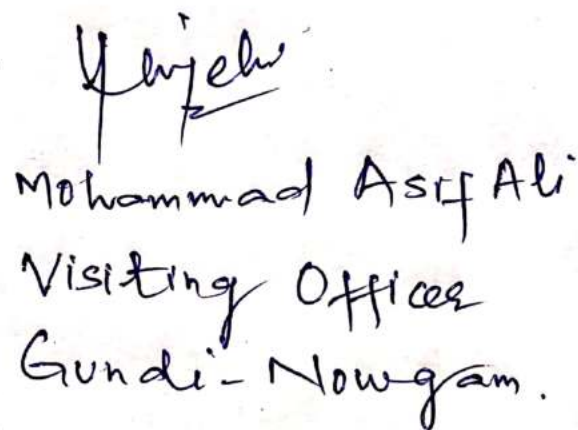 Mohammad Asif Ali
Visiting Officer
Gundi - Nowgam.